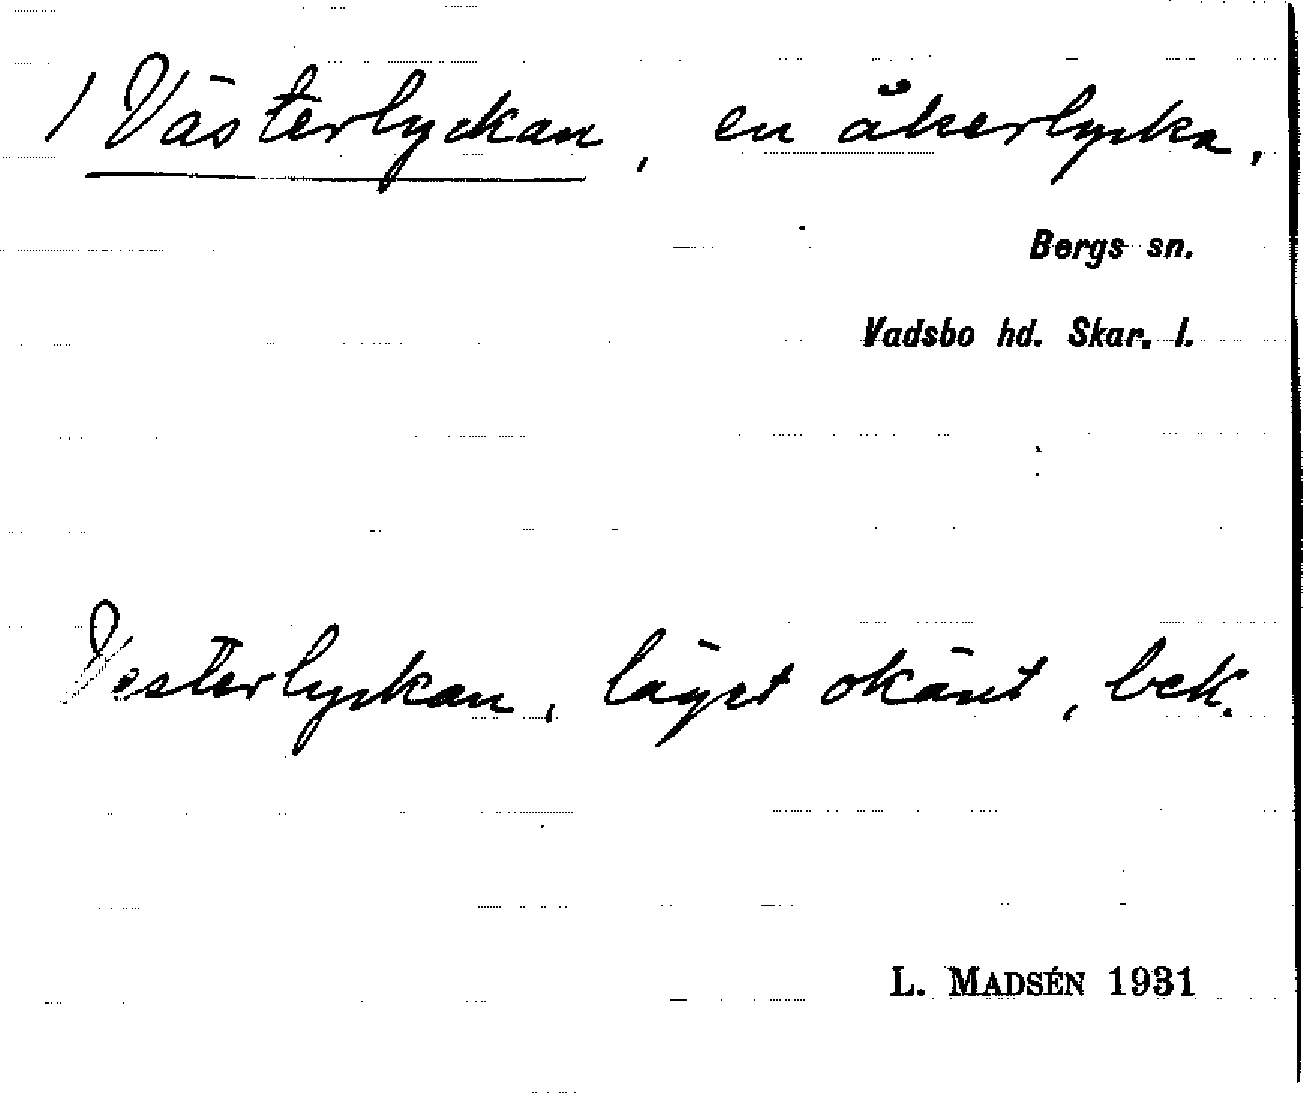 / Västerlyckan, en åkerlycka,
Bergs sn.
Vadsbo hd. Skar. l.
Vesterlyckan, läget okänt, bek.
L. MADSÉN 1931